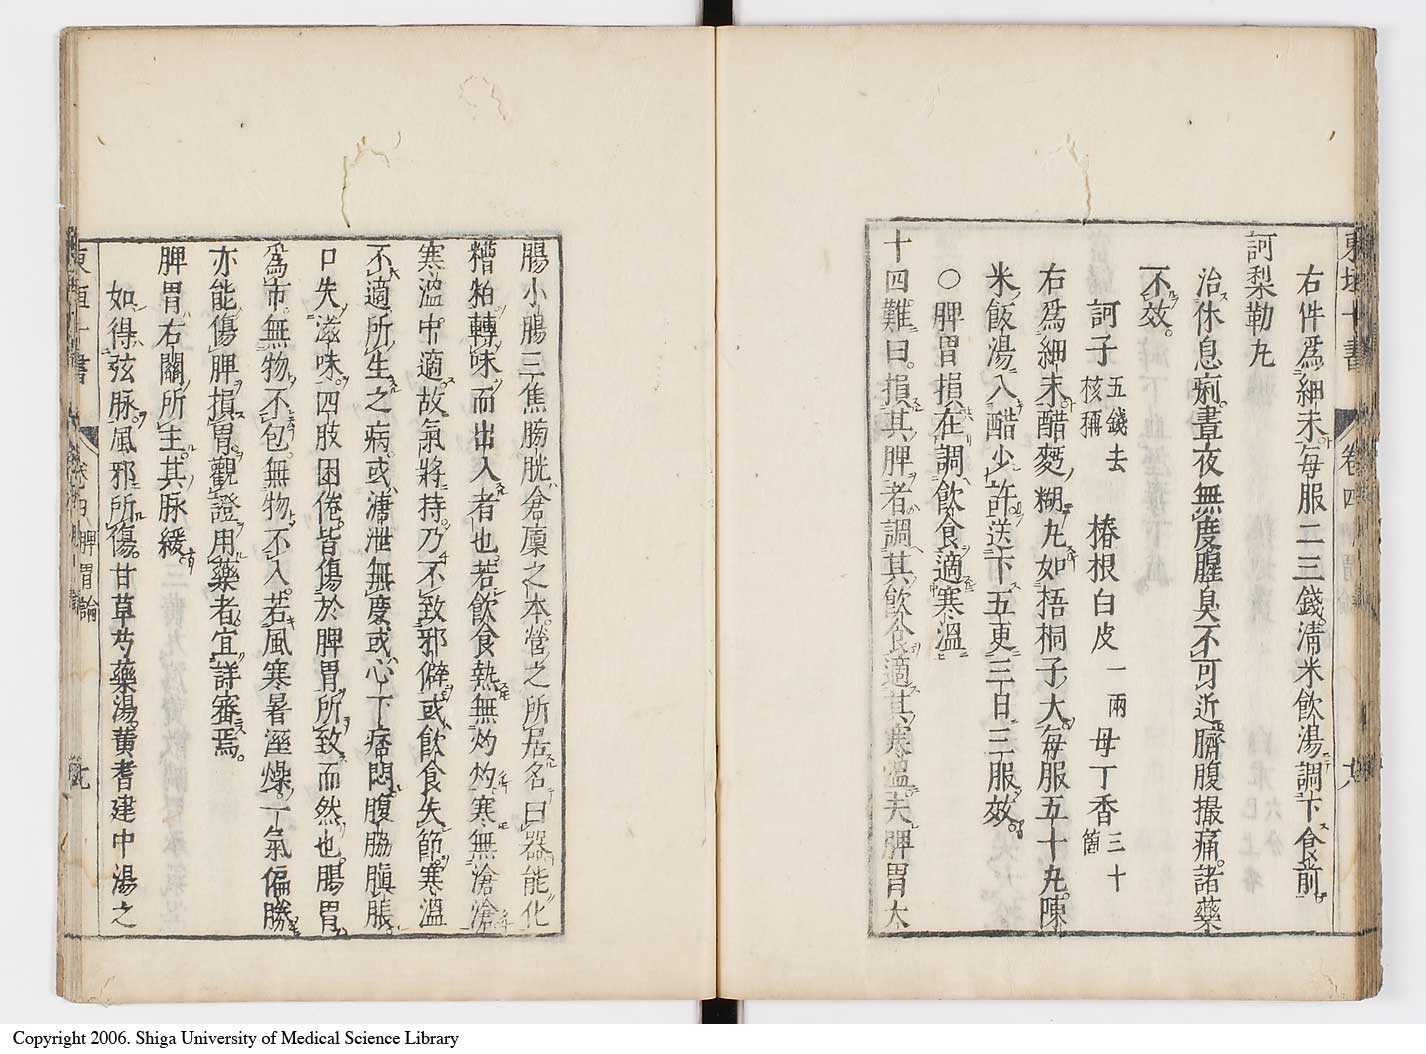 東垣十書 卷四
右件爲細末每服二三錢淸米飲湯調下食前
訶梨勒丸
治休息痢晝夜無度腥臭不可近臍腹撮痛諸藥
不效
訶子五錢去核稱 椿根白皮一兩 母丁香三十箇
右爲細末醋麪糊丸如梧桐子大每服五十丸陳
米飯湯入醋少許送下五更三日三服效
○脾胃損在調飲食適寒溫
十四難曰損其脾者調其飲食適其寒溫夫脾胃大
腸小腸三焦膀胱倉廩之本營之所居名曰器能化
糟粕轉味而出入者也若飲食熱無灼灼寒無滄滄
寒溫中適故氣將持乃不致邪僻或飲食失節寒溫
不適所生之病或溏泄無度或心下痞悶腹脇䐜脹
口失滋味四肢困倦皆傷於脾胃所致而然也腸胃
爲市無物不包無物不入若風寒暑溼燥一氣偏勝
亦能傷脾損胃觀證用藥者宜詳審焉
脾胃右關所主其脉緩
如得弦脉風邪所傷甘草芍藥湯黃耆建中湯之
東垣十書 卷四 脾胃論
Copyright 2006. Shiga University of Medical Science Library